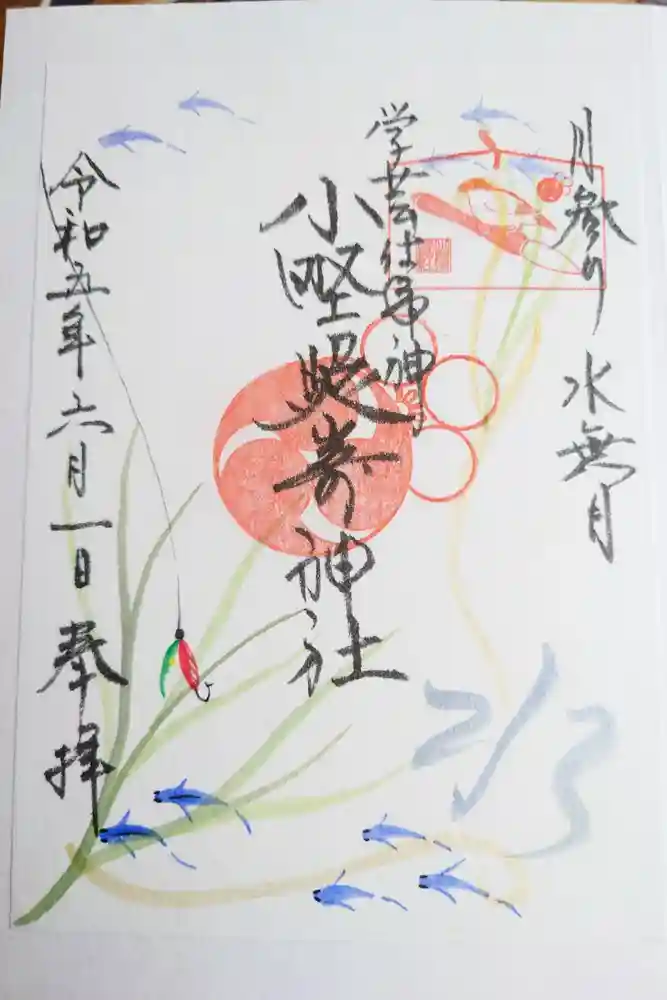 月参り 水無月
学芸仕事神
小野照嵜神社
令和五年六月一日 奉拝
2/3